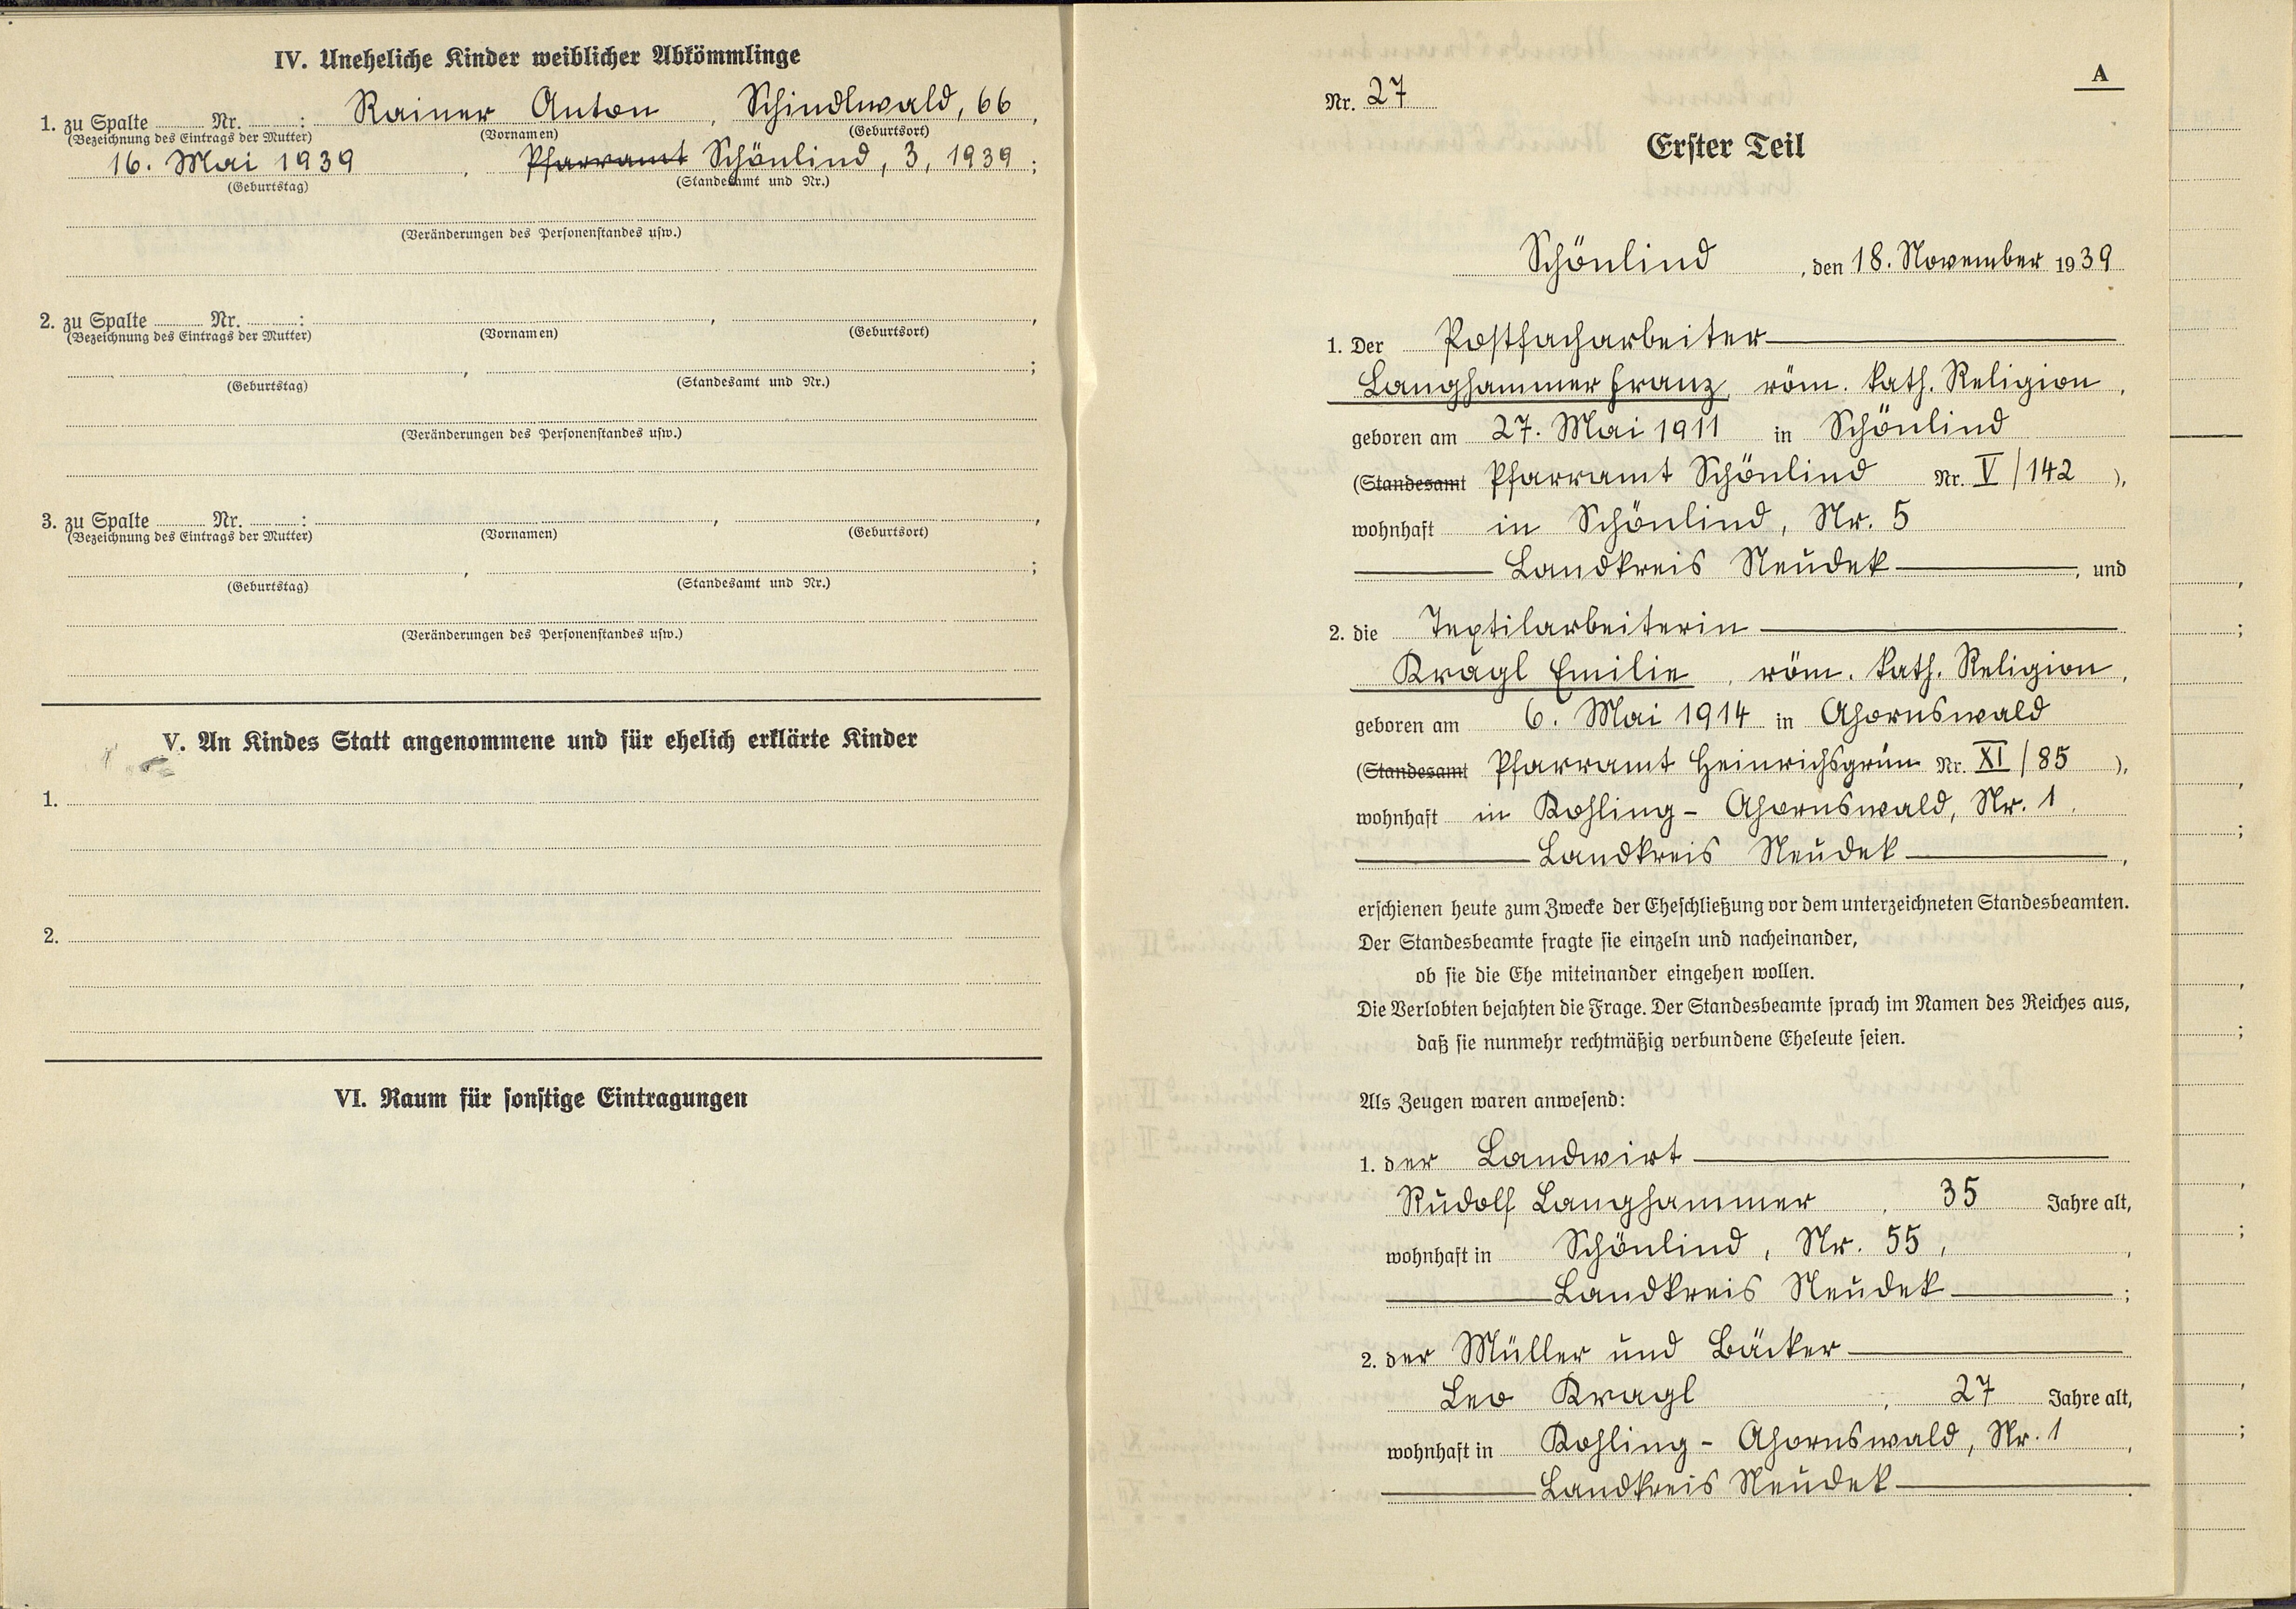 IV. Uneheliche Kinder weiblicher Abkömmlinge
1. zu Spalte ........ Nr. ........: Rainer Anton, Schindlwald, 66,
(Bezeichnung des Eintrags der Mutter) (Vornamen) (Geburtsort)
16. Mai 1939, Pfarramt Schönlind, 3, 1939;
(Geburtstag) (Standesamt und Nr.)
(Veränderungen des Personenstandes usw.)
2. zu Spalte ........ Nr. ........: , ,
(Bezeichnung des Eintrags der Mutter) (Vornamen) (Geburtsort)
, ;
(Geburtstag) (Standesamt und Nr.)
(Veränderungen des Personenstandes usw.)
3. zu Spalte ........ Nr. ........: , ,
(Bezeichnung des Eintrags der Mutter) (Vornamen) (Geburtsort)
, ;
(Geburtstag) (Standesamt und Nr.)
(Veränderungen des Personenstandes usw.)
V. An Kindes Statt angenommene und für ehelich erklärte Kinder
1.
2.
VI. Raum für sonstige Eintragungen
A
Nr. 27
Erster Teil
Schönlind, den 18. November 1939
1. Der Postfacharbeiter
Langhammer Franz, röm. kath. Religion,
geboren am 27. Mai 1911 in Schönlind
(Standesamt Pfarramt Schönlind Nr. V/142),
wohnhaft in Schönlind, Nr. 5
Landkreis Neudek, und
2. die Textilarbeiterin
Kragl Emilie, röm. kath. Religion,
geboren am 6. Mai 1914 in Ahornswald
(Standesamt Pfarramt Heinrichsgrün Nr. XI/85),
wohnhaft in Kohling - Ahornswald, Nr. 1.
Landkreis Neudek,
erschienen heute zum Zwecke der Eheschließung vor dem unterzeichneten Standesbeamten.
Der Standesbeamte fragte sie einzeln und nacheinander,
ob sie die Ehe miteinander eingehen wollen.
Die Verlobten bejahten die Frage. Der Standesbeamte sprach im Namen des Reiches aus,
daß sie nunmehr rechtmäßig verbundene Eheleute seien.
Als Zeugen waren anwesend:
1. der Landwirt
Rudolf Langhammer, 35 Jahre alt,
wohnhaft in Schönlind, Nr. 55,,
Landkreis Neudek;
2. der Müller und Bäcker
Leo Kragl, 27 Jahre alt,
wohnhaft in Kohling - Ahornswald, Nr. 1,
Landkreis Neudek.